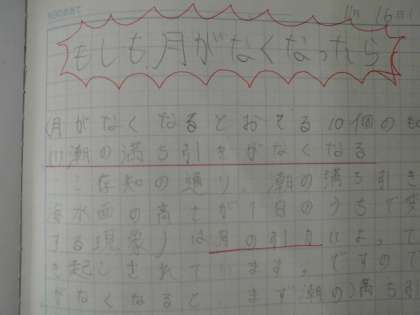 11月 16日
もしも月がなくなったら
月がなくなるとおきる10個のも
(1)潮の満ち引きがなくなる
ご存知の通り、潮の満ち引き
海水面の高さが1日のうちで変
する現象)は月の引力によって
き起こされています。ですので
がなくなると、まず潮の満ち引